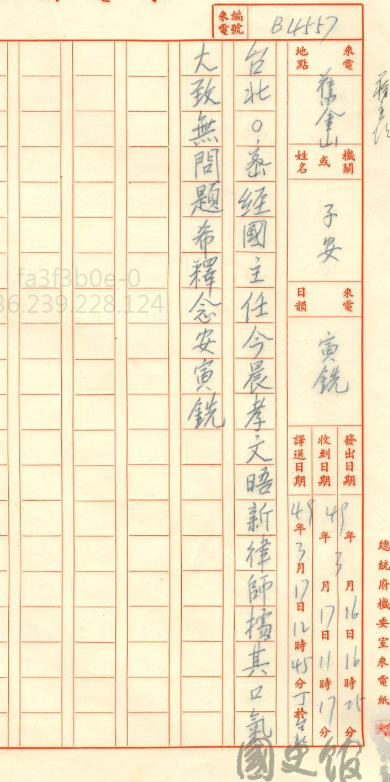 來電編號 B4557
來電地點 舊金山
機關或姓名 子安
來電日韻 寅銑
發出日期 49年3月16日16時25分
收到日期 49年 月17日11時17分
譯送日期 49年3月17日12時45分
總統府機要室來電紙
台北○密經國主任今晨孝文晤新律師擂其口氣
大致無問題希釋念安寅銑
國史館
fa3f3b0e-0
36.239.228.124